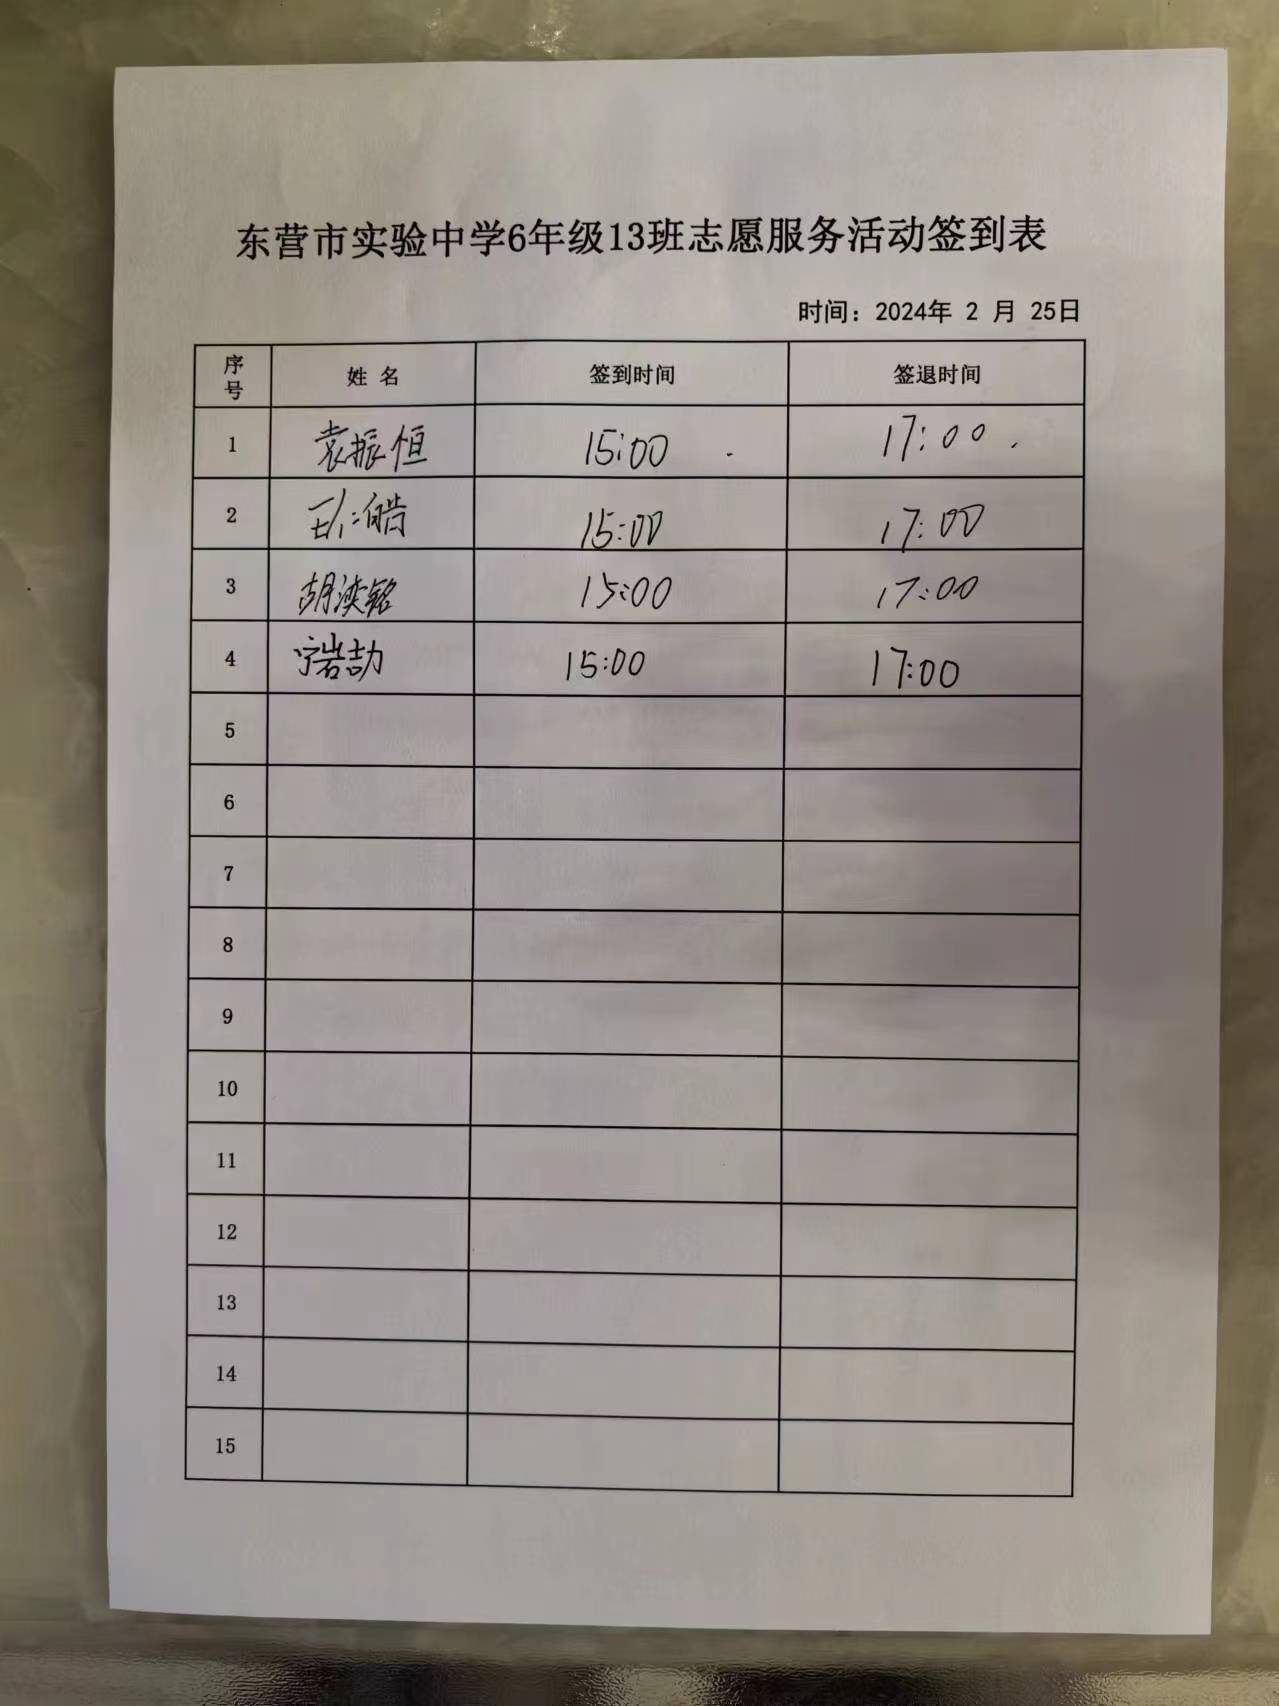 东营市实验中学6年级13班志愿服务活动签到表
时间：2024年 2 月 25日
序号 姓 名 签到时间 签退时间
1 袁振恒 15:00 17:00
2 王仁皓 15:00 17:00
3 胡滐铭 15:00 17:00
4 宁岩劼 15:00 17:00
5
6
7
8
9
10
11
12
13
14
15